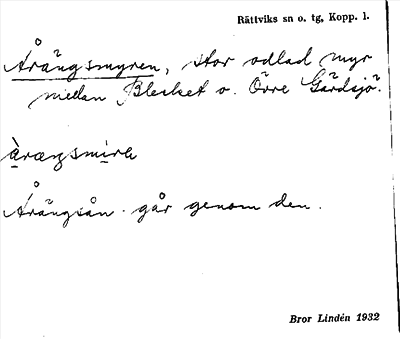 Rättviks sn o. tg, Kopp. l.
Årängsmyren, stor odlad myr
mellan Blecket o. Övre Gärdsjö.
àrængsmìra
Årängsån går genom den.
Bror Lindén 1932